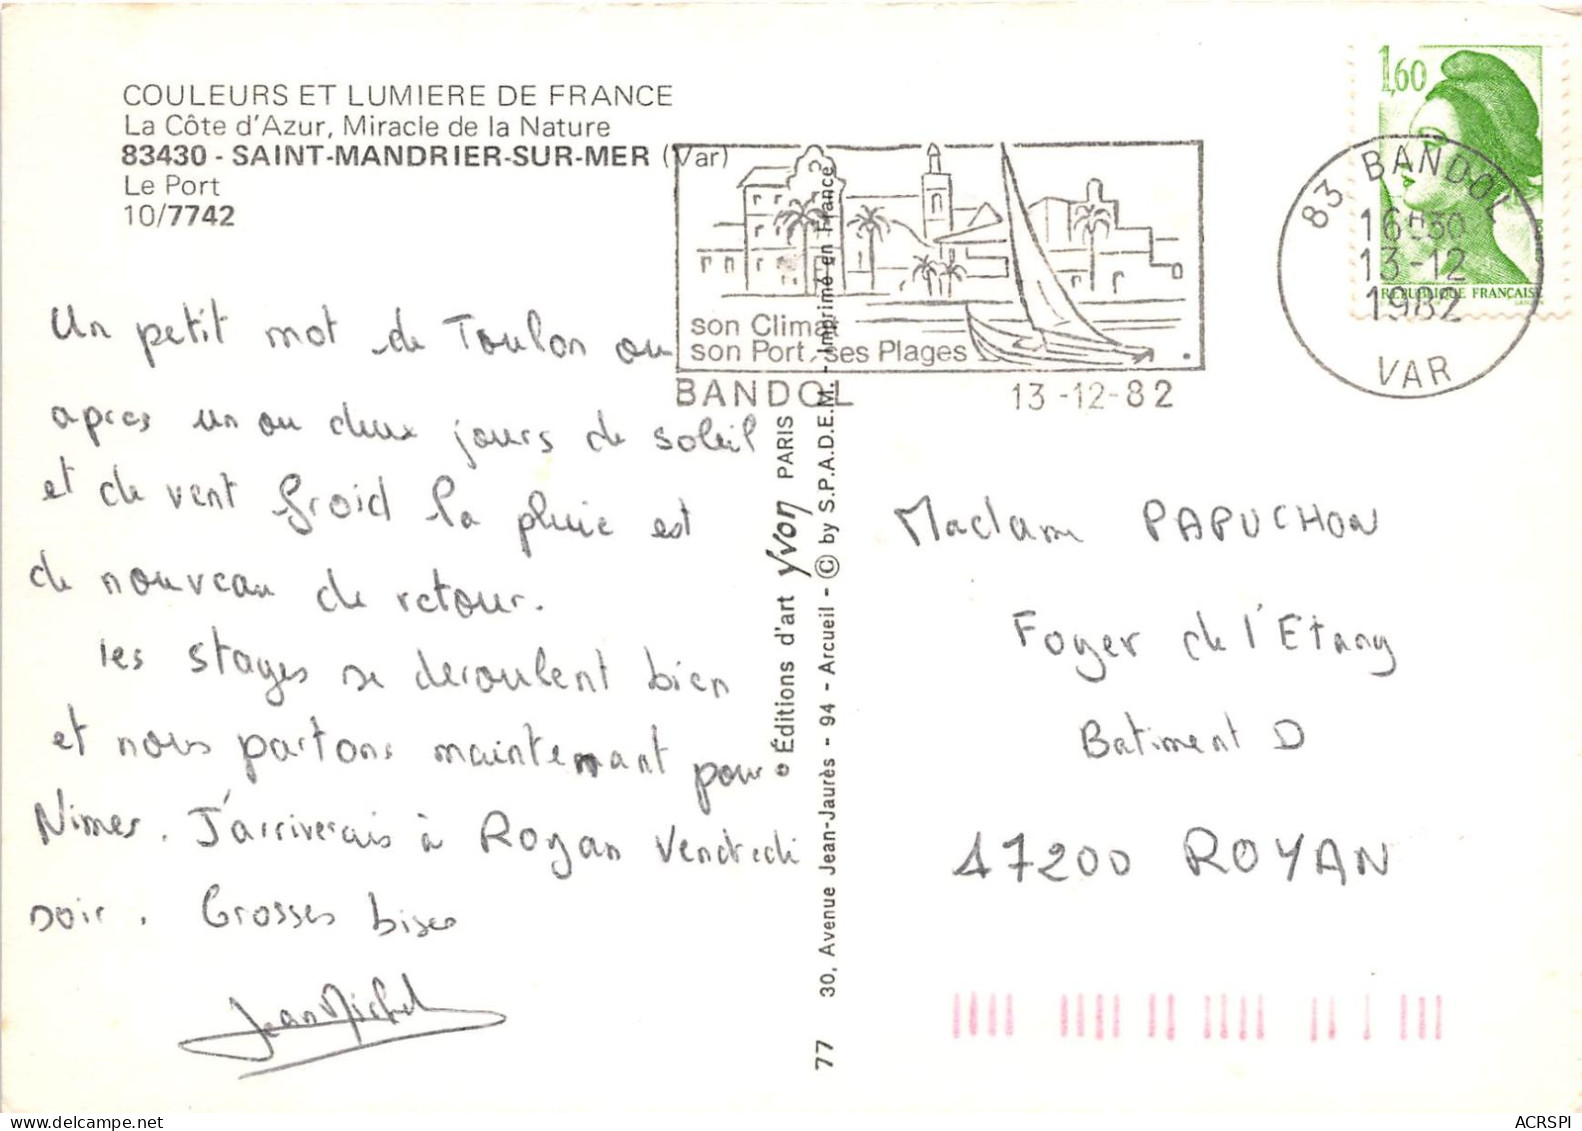 COULEURS ET LUMIERE DE FRANCE
La Côte d'Azur, Miracle de la Nature
83430 - SAINT-MANDRIER-SUR-MER (Var)
Le Port
10/7742
1,60
REPUBLIQUE FRANÇAISE
83 BANDOL
16H30
13-12
1982
VAR
son Climat
son Port, ses Plages
BANDOL 13-12-82
Un petit mot de Toulon ou
après un ou deux jours de soleil
et de vent froid la pluie est
de nouveau de retour.
les stages se deroulent bien
et nous partons maintenant pour
Nimes. J'arriverais à Royan Vendredi
soir. Grosses bises
Jean Michel
Editions d'art yvon PARIS
77 30, Avenue Jean-Jaurès - 94 - Arcueil - © by S.P.A.D.E.M. - Imprimé en France
Madame PAPUCHON
Foyer de l'Etang
Batiment D
17200 ROYAN
ACRSPI